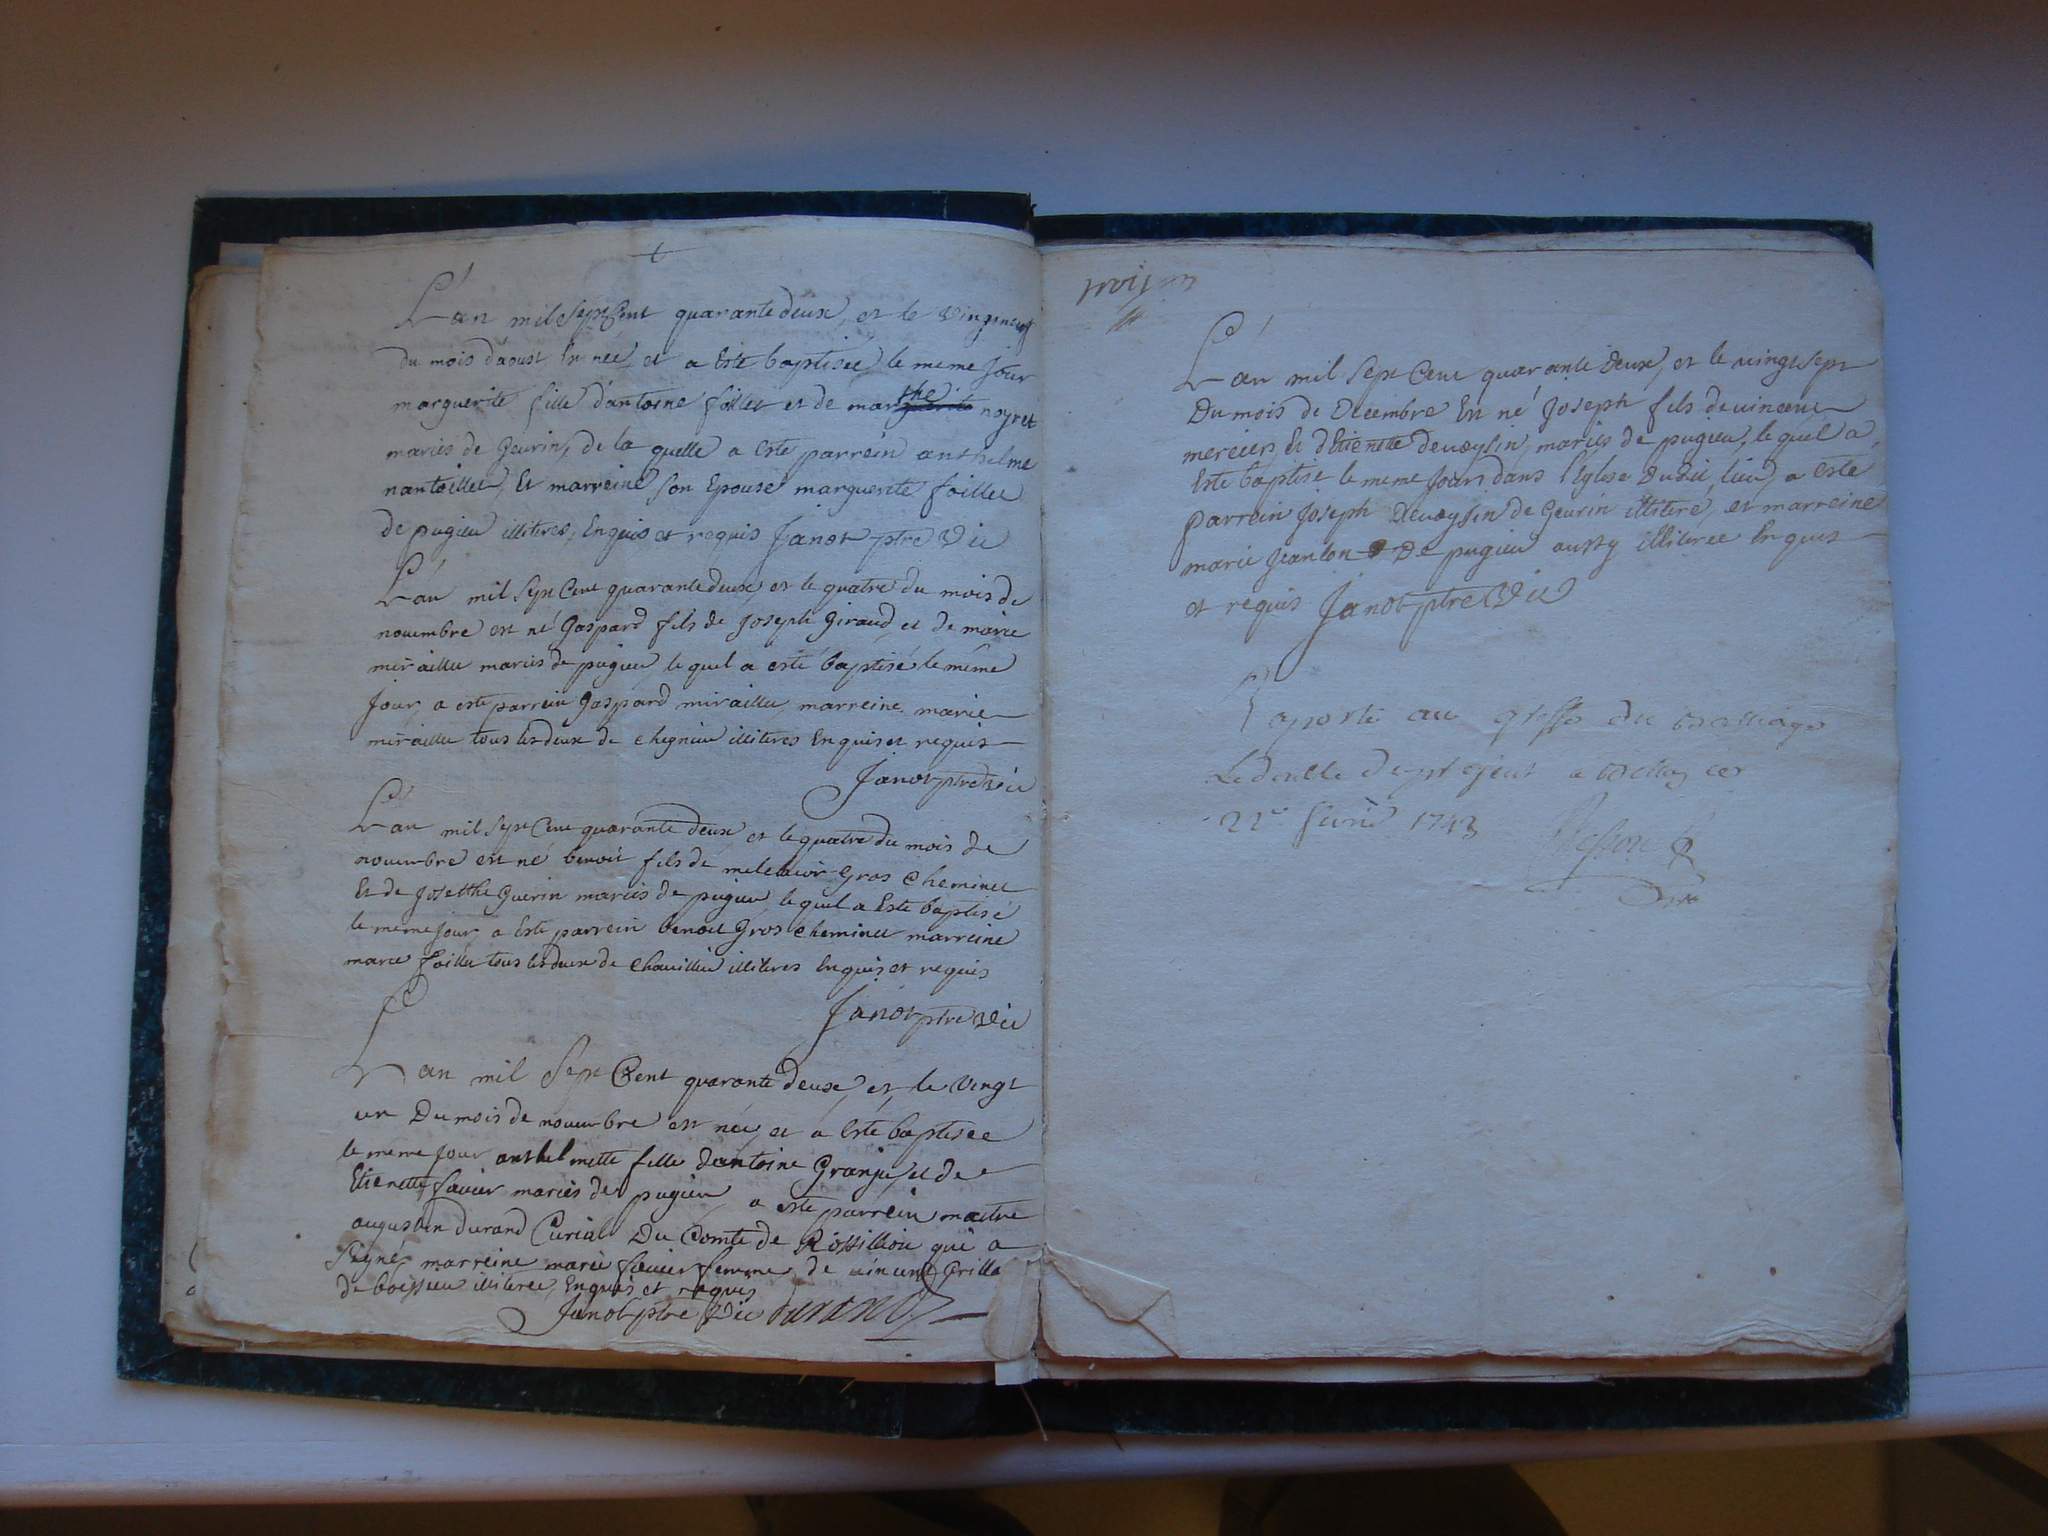 L'an mil sept Cent quarante deux, et le vingtneuf
du mois d'aoust Est née et a Este baptisée le meme Jour
marguerite fille d'antoine foillet et de marthe noyret
mariés de Geurin, de la quelle a Este parrein anthelme
nantoillet, Et marreine Son Epouse marguerite foillet
de pugieu illiteres, Enquis et requis Janot ptre Vic
L'an mil Sept Cent quarante deux, et le quatre du mois de
novembre est né Gaspard fils de Joseph Giraud, et de marie
miraillet mariés de pugieu, le quel a esté baptisé le même
Jour, a este parrein Gaspard miraillet, marreine marie
miraillet tous les deux de Chegnieu illiteres Enquis et requis
Janot ptre Vic
L'an mil Sept Cent quarante deux, et le quatre du mois de
novembre est né benoit fils de melchior Gros Cheminet
Et de Josetthe Guerin mariés de pugieu le quel a Este baptisé
le meme Jour, a Este parrein benoit Gros Cheminet marreine
marie foillet tous les deux de Chavillieu illiteres Enquis et requis
Janot ptre Vic
L'an mil Sept Cent quarante deux, et le vingt
un Du mois de novembre est née, et a Esté baptisée
le meme Jour anthelmette fille d'antoine Granje, et de
Etienette favier mariés de pugieu, a esté parrein maitre
augustin durand Curial Du Comte de Rossillion qui a
Signé, marreine marie favier femme de vincent Grilla
de boissieu illiteree, Enquis et requis
Janot ptre Vic Durand
L'an mil Sept Cent quarante Deux, et le vingt sept
Du mois de Decembre Est né Joseph fils de vincent
mercier, Et d'Etienette devoysin, mariés de pugieu, le quel a
Este baptisé le meme Jour, dans l'Eglise Dudit lieu, a esté
parrein Joseph Devoysin de Geurin illiteré, et marreine
marie Jeanton De pugieu aussy illiteree Enquis
et requis Janot ptre Vic
Raporté au greffe du Balliage
Le double du present a Belley ce
22e fevrier 1743